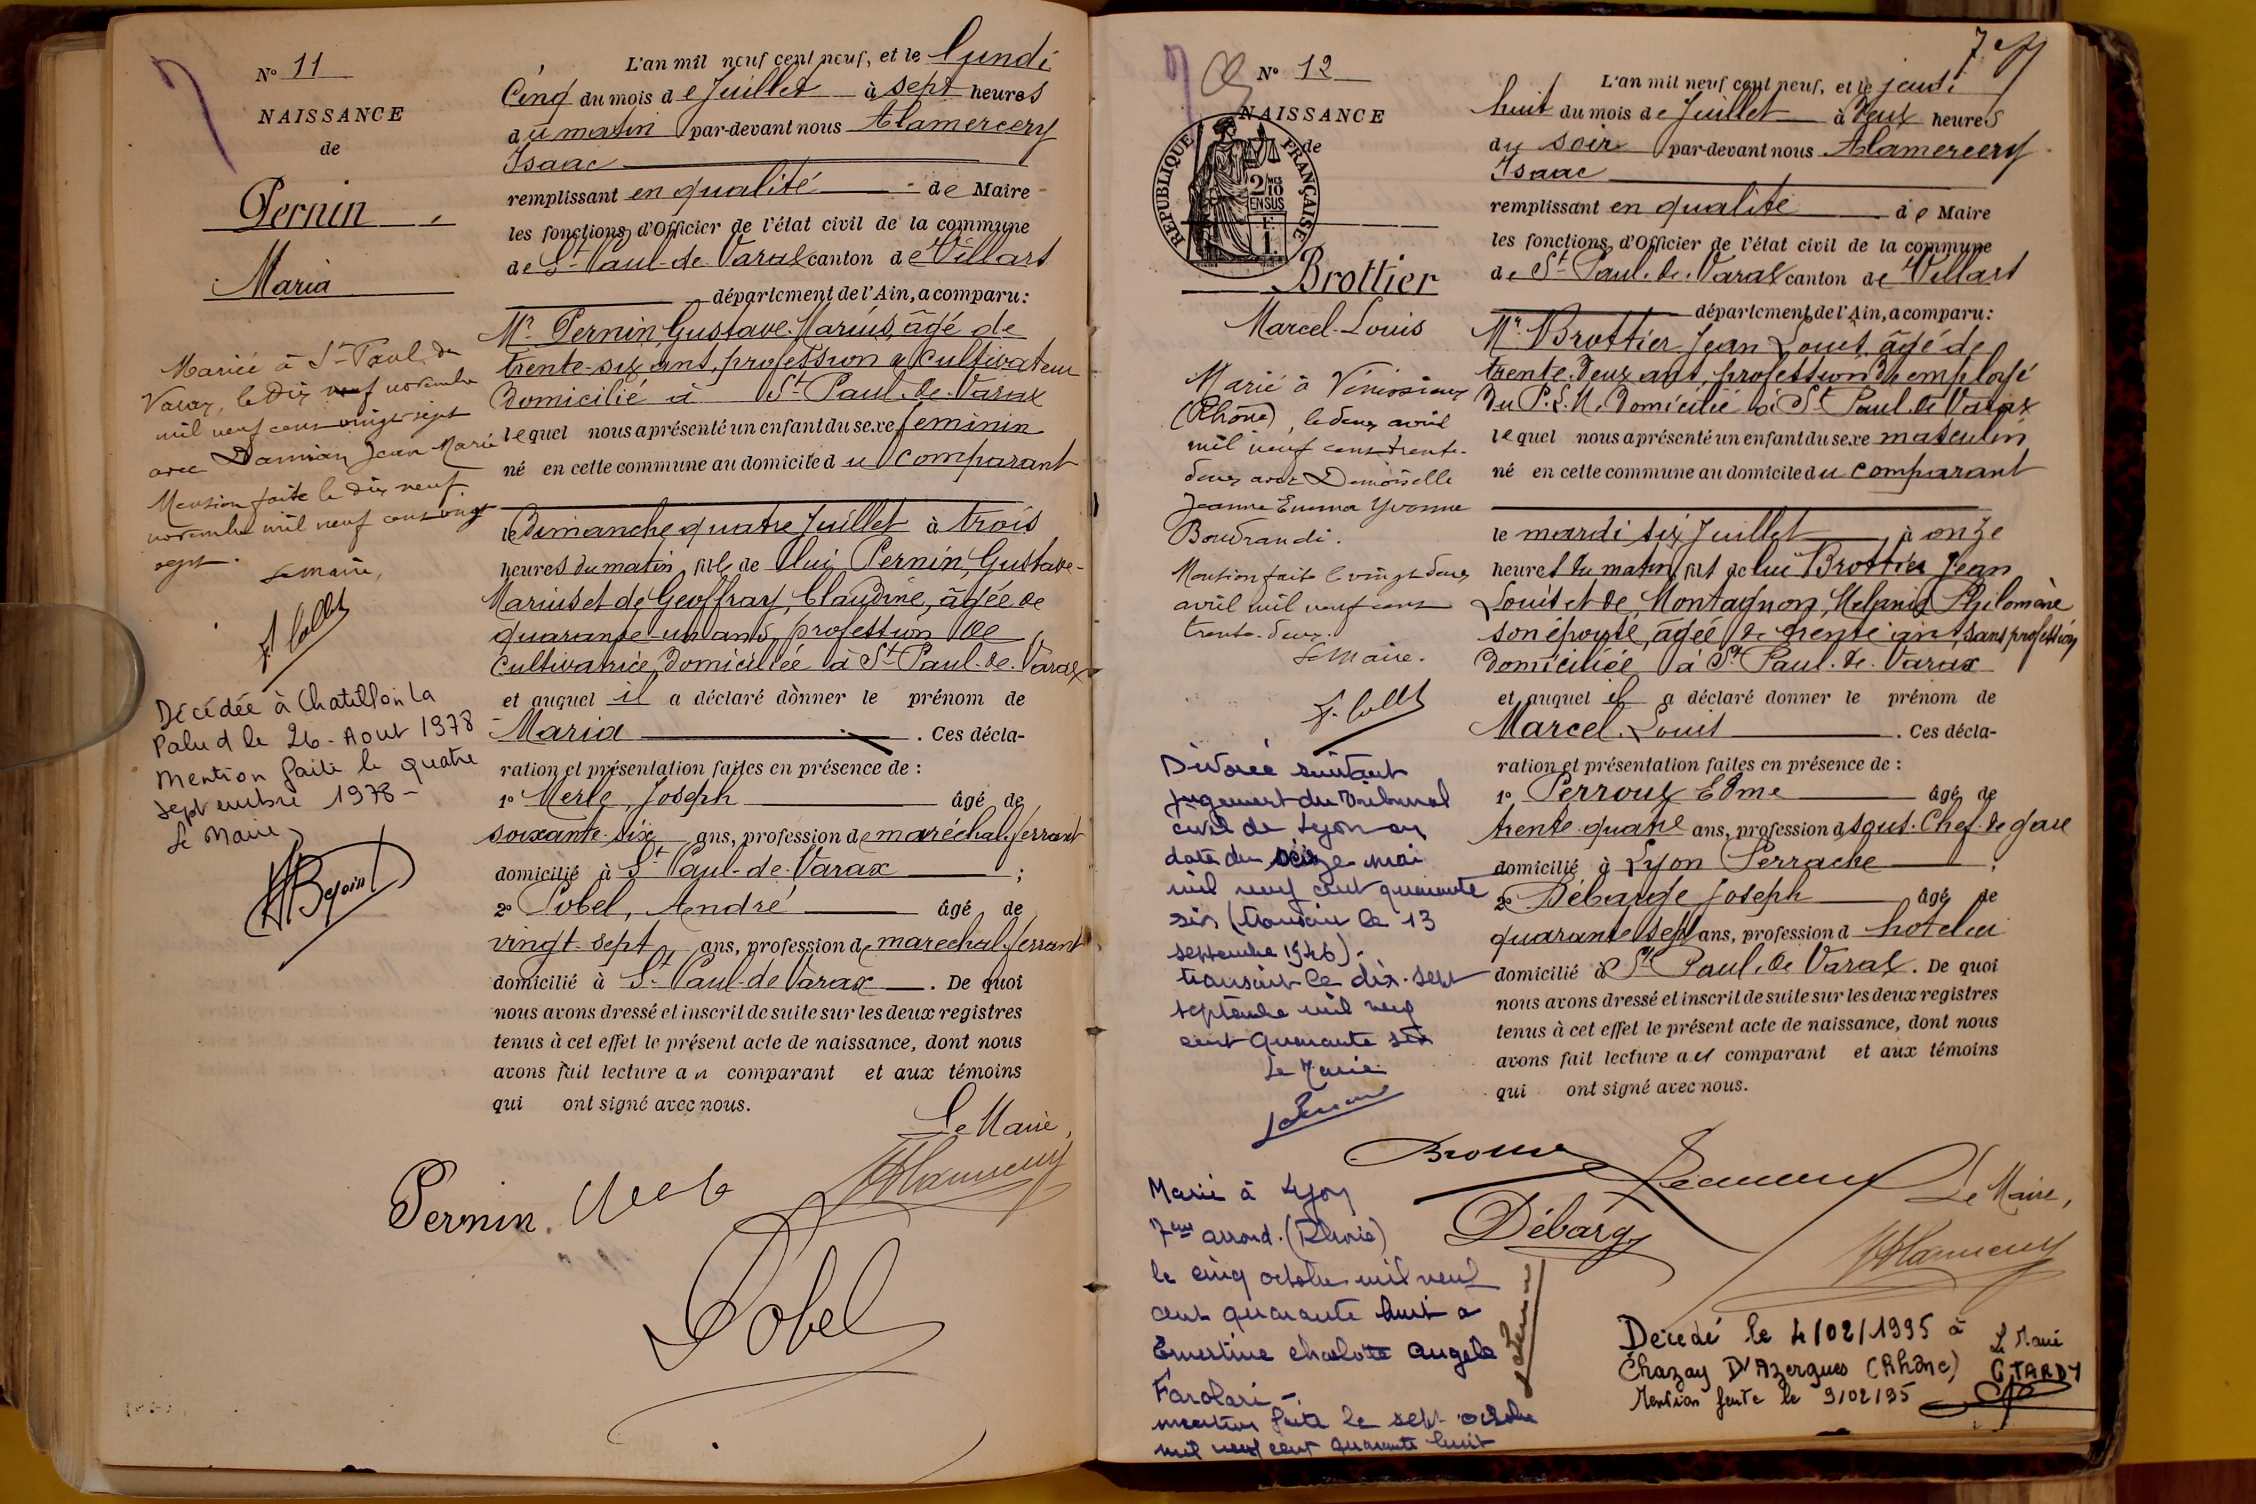 N° 11
NAISSANCE
de
Pernin
Maria
Mariée à St Paul de
Varax, le dix neuf novembre
mil neuf cent vingt sept
avec Damian Jean Marie
Mention faite le dix neuf
novembre mil neuf cent vingt
sept.
Le Maire,
Décédée à Chatillon La
Palud le 26 - Aout 1978
Mention faite le quatre
septembre 1978 -
Le Maire
L'an mil neuf cent neuf, et le lundi
Cinq du mois de Juillet à sept heures
du matin par-devant nous Alamercery
Isaac
remplissant en qualité de Maire
les fonctions d'Officier de l'état civil de la commune
de St Paul-de-Varax canton de Villars
département de l'Ain, a comparu :
Mr Pernin Gustave-Marius, âgé de
trente-six ans, profession de cultivateur
Domicilié à St Paul-de-Varax
lequel nous a présenté un enfant du sexe féminin
né en cette commune au domicile du comparant
le Dimanche quatre Juillet à trois
heures du matin, fille de lui Pernin, Gustave-
Marius et de Geoffray, Claudine, âgée de
quarante-un ans, profession de
Cultivatrice, domiciliée à St Paul-de-Varax
et auquel il a déclaré donner le prénom de
Maria . Ces décla-
ration et présentation faites en présence de :
1° Merle, Joseph âgé de
soixante-six ans, profession de maréchal-ferrant
domicilié à St Paul-de-Varax ;
2° Pobel, André âgé de
vingt-sept ans, profession de maréchal-ferrant
domicilié à St Paul-de-Varax . De quoi
nous avons dressé et inscrit de suite sur les deux registres
tenus à cet effet le présent acte de naissance, dont nous
avons fait lecture au comparant et aux témoins
qui ont signé avec nous.
Le Maire,
Pernin
Pobel
7
N° 12
NAISSANCE
de
RÉPUBLIQUE FRANÇAISE
2/10
EN SUS
Brottier
Marcel-Louis
Marié à Vénissieux
(Rhône), le deux avril
mil neuf cent trente-
deux avec Demoiselle
Jeanne Emma Yvonne
Boudrandi.
Mention faite le vingt deux
avril mil neuf cent
trente-deux.
Le Maire.
Divorcé suivant
jugement du Tribunal
civil de Lyon en
date du seize mai
mil neuf cent quarante
six (transcrit le 13
septembre 1946).
transcrit le dix-sept
septembre mil neuf
cent quarante six
Le Maire
Marié à Lyon
7ème arrond. (Rhône)
le cinq octobre mil neuf
cent quarante huit à
Ernestine Charlotte Angela
Farolari -
mention faite le sept octobre
mil neuf cent quarante huit
L'an mil neuf cent neuf, et le jeudi
huit du mois de Juillet à deux heures
du soir par-devant nous Alamercery
Isaac
remplissant en qualité de Maire
les fonctions d'Officier de l'état civil de la commune
de St Paul-de-Varax canton de Villars
département de l'Ain, a comparu :
Mr Brottier Jean Louis âgé de
trente-deux ans, profession d'employé
du P.L.M. Domicilié à St Paul de Varax
lequel nous a présenté un enfant du sexe masculin
né en cette commune au domicile du comparant
le mardi six Juillet à onze
heures du matin, fils de lui Brottier Jean
Louis et de Montagnon Mélanie Philomène
son épouse, âgée de trente ans, sans profession
Domiciliée à St Paul-de-Varax
et auquel il a déclaré donner le prénom de
Marcel-Louis . Ces décla-
ration et présentation faites en présence de :
1° Perroux Edme âgé de
trente-quatre ans, profession de sous-Chef de gare
domicilié à Lyon Perrache ;
2° Débarge Joseph âgé de
quarante sept ans, profession d hotelier
domicilié à St Paul de Varax . De quoi
nous avons dressé et inscrit de suite sur les deux registres
tenus à cet effet le présent acte de naissance, dont nous
avons fait lecture au comparant et aux témoins
qui ont signé avec nous.
Débarge
Le Maire,
Décédé le 4/02/1995 à
Chazay D'Azergues (Rhône)
Mention faite le 9/02/95
Le Maire
G TARDY